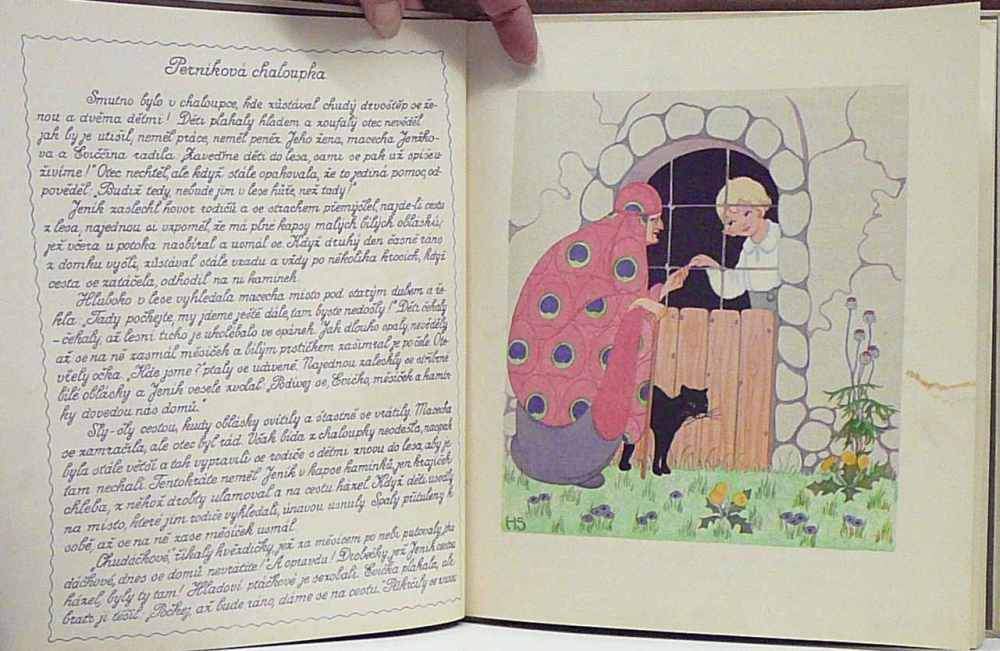 Perníková chaloupka
Smutno bylo v chaloupce, kde zůstával chudý drvoštěp se že-
nou a dvěma dětmi! Děti plakaly hladem a zoufalý otec nevěděl
jak by je utišil, neměl práce, neměl peněz. Jeho žena, macecha Jeníko-
va a Eviččina radila: „Zaveďme děti do lesa, sami se pak už spíše u-
živíme!" Otec nechtěl, ale když stále opakovala, že to jediná pomoc, od-
pověděl: „Budiž tedy, nebude jim v lese hůře, než tady!"
Jeník zaslechl hovor rodičů a se strachem přemýšlel, najde-li cestu
z lesa, najednou si vzpoměl, že má plné kapsy malých bílých oblásků,
jež včera u potoka nasbíral a usmál se. Když druhý den časně ráno
z domku vyšli, zůstával stále vzadu a vždy po několika krocích, když
cesta se zatáčela, odhodil na ni kamínek.
Hluboko v lese vyhledala macecha místo pod starým dubem a ře-
kla: „Tady počkejte, my jdeme ještě dále, tam byste nedošly!" Děti čekaly
–čekaly, až lesní ticho je ukolébalo ve spánek. Jak dlouho spaly, nevěděly
až se na ně zasmál měsíček a bílým prstíčkem zašimral je po čele. Ote-
vřely očka. „Kde jsme?" ptaly se udiveně. Najednou zaleskly se stříbrně
bílé oblásky a Jeník vesele zvolal: „Podívej se, Evičko, měsíček a kamín-
ky dovedou nás domů."
Šly-šly cestou, kudy oblásky svítily a šťastně se vrátily. Macecha
se zamračila, ale otec byl rád. Však bída z chaloupky neodešla, naopak
byla stále větší a tak vypravili se rodiče s dětmi znovu do lesa, aby je
tam nechali. Tentokráte neměl Jeník v kapse kamínků, jen krajíček
chleba, z něhož drobty ulamoval a na cestu házel. Když děti usedly
na místo, které jim rodiče vyhledali, únavou usnuly. Spaly přituleny k
sobě, až se na ně zase měsíček usmál.
„Chudáčkové," říkaly hvězdičky, jež za měsícem po nebi putovaly, „chu-
dáčkové, dnes se domů nevrátíte!" A opravdu! Drobečky, jež Jeník cestou
házel, byly ty tam! Hladoví ptáčkové je sezobali. Evička plakala, ale
bratr ji těšil: „Počkej, až bude ráno, dáme se na cestu." Přikrčily se
HS